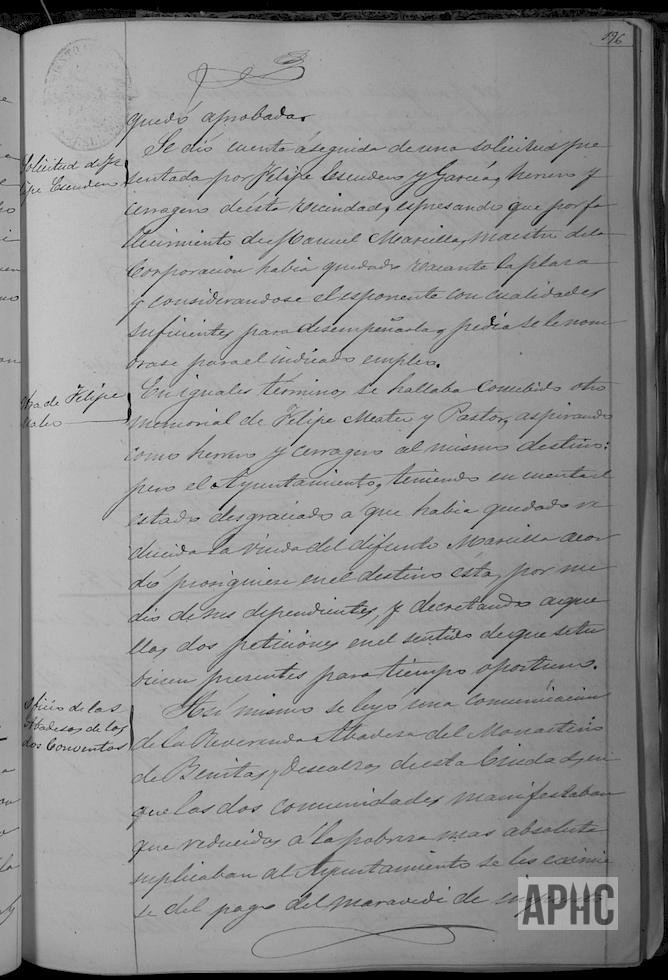 196
quedó aprobada.
Solicitud de Fe
lipe Escudero
Se dió cuenta áseguida de una solicitud pre
sentada por Felipe Escudero y García, herrero y
cerragero de esta vecindad, espresando que por fa
llecimiento de Manuel Marcilla, maestro dela
Corporacion habia quedado vacante la plaza
y considerandose el esponente con cualidades
suficientes para desempeñarla, pedia se le nom
brase para el indicado empleo.
Otra de Felipe
Mateo
En iguales términos se hallaba concebido otro
memorial de Felipe Mateo y Pastor, aspirando
como herrero y cerragero al mismo destino:
pero el Ayuntamiento, teniendo en cuenta el
estado desgraciado a que habia quedado re
ducida la viuda del difunto Marcilla acor
dó prosiguiese en el destino ésta, por me
dio de sus dependientes, y decretando aque
llas dos peticiones en el sentido de que se tu
biesen presentes para tiempo oportuno.
Oficio de las
Abadesas de los
dos Conventos
Asi mismo se leyó una comunicacion
de la Reverenda Abadesa del Monasterio
de Benitas y Descalzas de esta Ciudad, en
que las dos comunidades manifestaban
que reducidas á la pobreza mas absoluta
suplicaban al Ayuntamiento se les eximie
se del pago del maravedi de
APHC